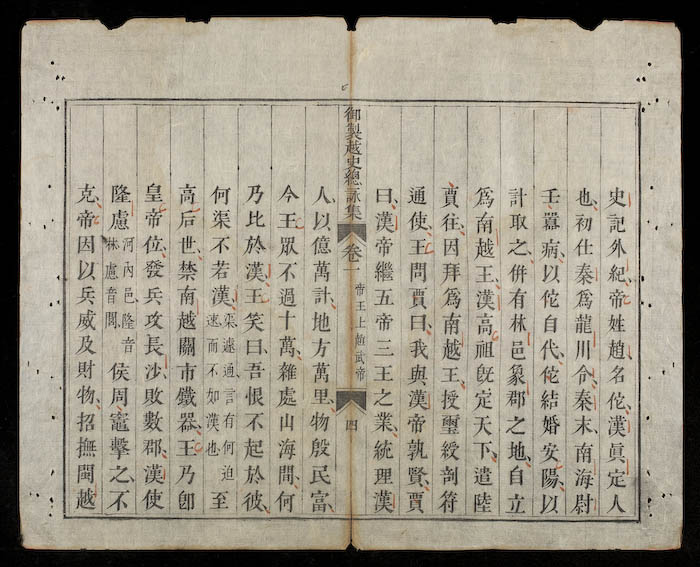 史記外紀帝姓趙名佗漢眞定人
也初仕秦爲龍川令秦末南海尉
壬囂病以佗自代佗結婚安陽以
計取之併有林邑象郡之地自立
爲南越王漢高祖旣定天下遣陸
賈往因拜爲南越王授璽綬剖符
通使王問賈曰我與漢帝孰賢賈
曰漢帝繼五帝三王之業統理漢
御製越史總詠集 卷一 帝王上趙武帝 四
人以億萬計地方萬里物殷民富
今王眾不過十萬雜處山海間何
乃比於漢王笑曰吾恨不起於彼
何渠不若漢渠遽通言有何迫速而不如漢也至
高后世禁南越關市鐵器王乃卽
皇帝位發兵攻長沙敗數郡漢使
隆慮河內邑隆音林慮音閭侯周竈擊之不
克帝因以兵威及財物招撫閩越